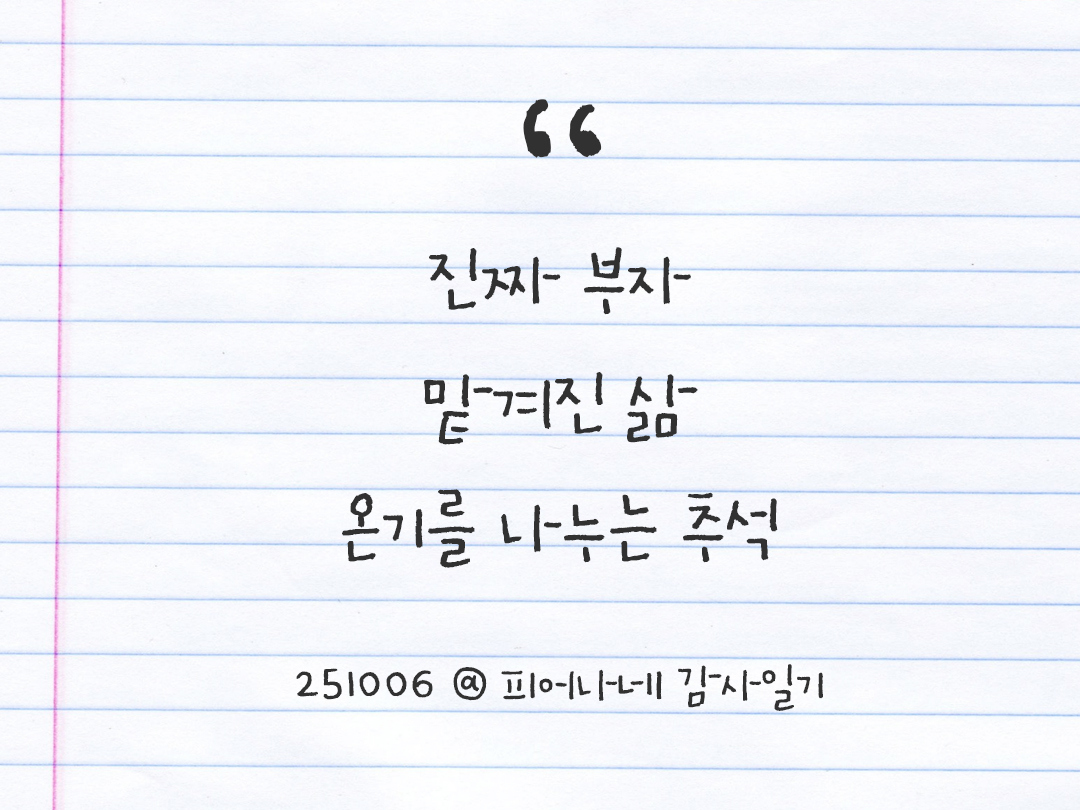 “
진짜 부자
맡겨진 삶
온기를 나누는 추석
251006 @ 피어나네 감사일기